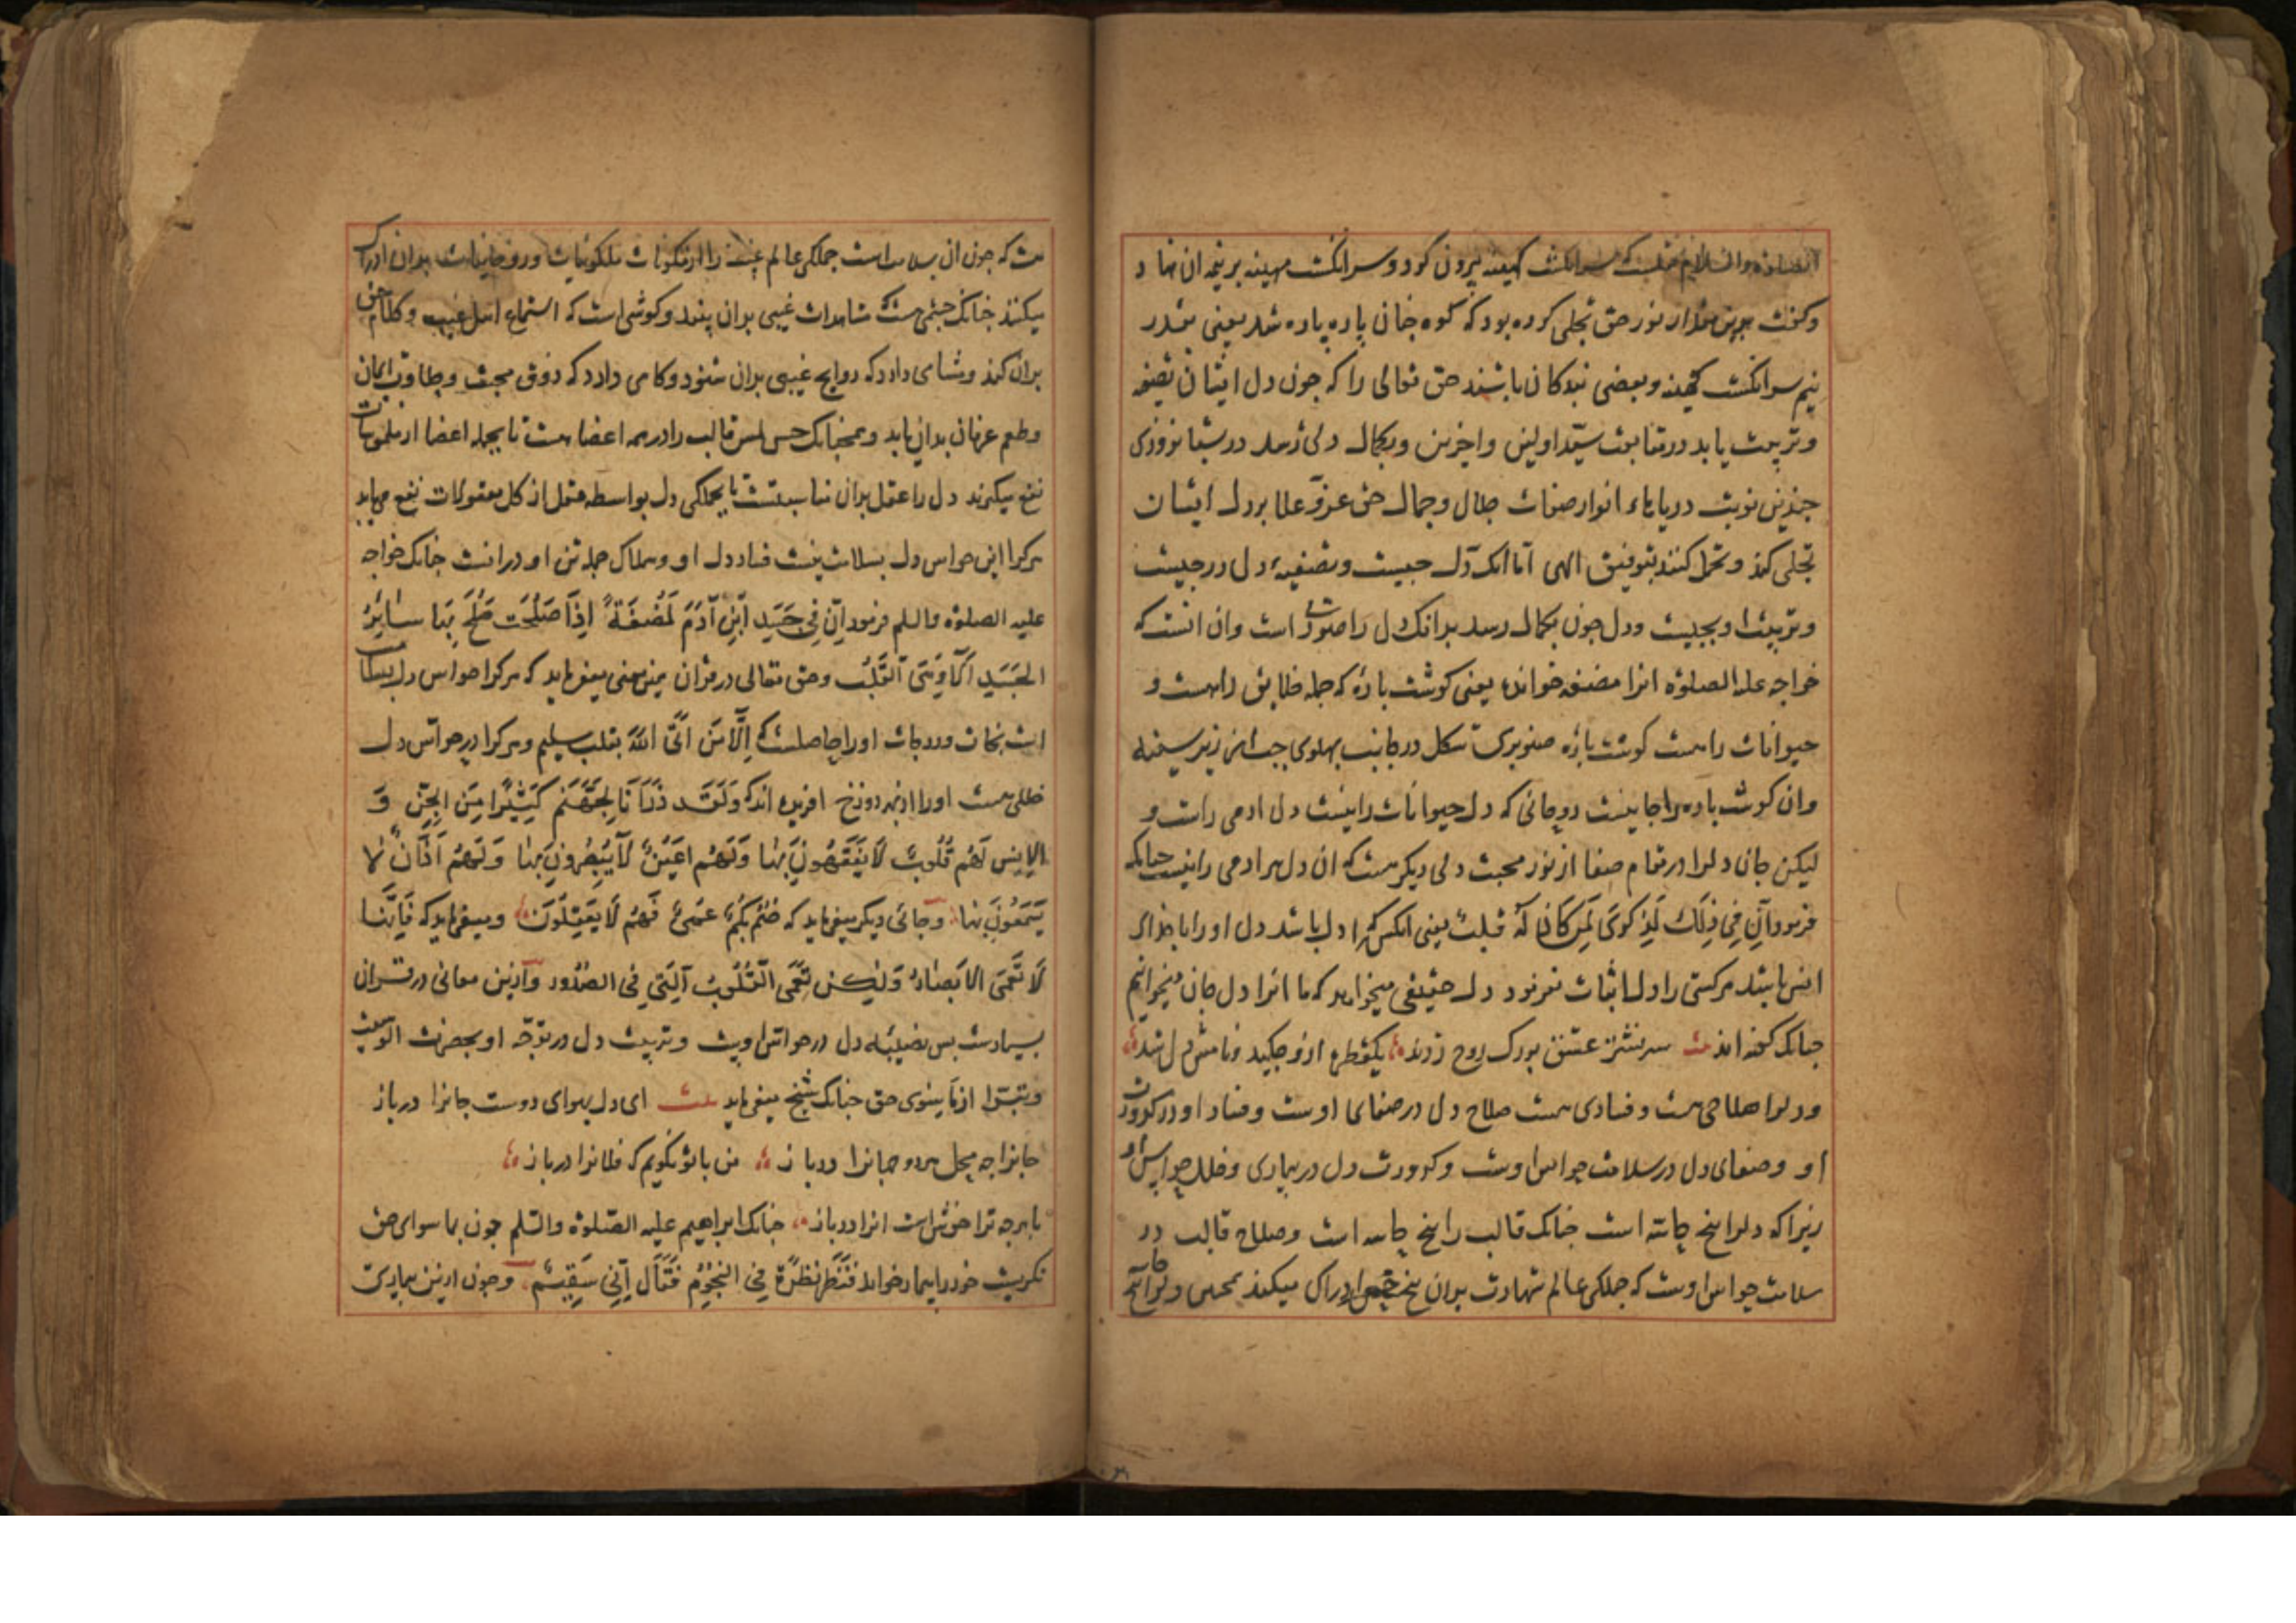 الصلوة والسلام که سر انکشت کهینه بیرون کرد و سر انکشت مهینه بر نیمه ان نهاد
وکفت برین مقدار از نور حق تجلی کرده بود که کوه جنان پاره پاره شد یعنی بقدر
نیم سر انکشت کهینه وبعضی بندکان باشند حق تعالی را که جون دل ایشان تصفیه
وتربیت یابد در متابعت سید اولین واخرین وبکمال دلی رسد در شبانروزی
جندین نوبت دریاهاء انوار صفات جلال وجمال حق عز وعلا بر دل ایشان
تجلی کند وتحمل کنند بتوفیق الهی اما انک دل جیست وتصفیهٔ دل در جیست
وتربیت او بجیست ودل جون بکمال رسد بدانک دل را صورتی است وان انست که
خواجه علیه الصلوة انرا مضغه خواند یعنی کوشت بارهٔ که جمله خلایق راهست و
حیوانات راهست کوشت بارهٔ صنوبری شکل در جانب بهلوی جب از زیر سینه
وان کوشت باره را جانیست روحانی که دل حیوانات را نیست دل ادمی راست و
لیکن جان دلرا در مقام صفا از نور محبت دلی دیکر هست که ان دل هر ادمی را نیست جنانک
فرمود اِنَّ فِی ذٰلِكَ لَذِکریٰ لِمَن کَانَ لَهُ قَلبٌ یعنی انکس که را دل باشد دل او را با خدای
انس باشد هر کسی را دل اثبات نفرمود دل حقیقی میخواهد که ما انرا دل جان میخوانیم
جنانک کفته اند بیت سر نشتر عشق بر رک روح زدند یک قطره ازو جکید ونامش دل شد
ودلرا صلاحی هست وفسادی هست صلاح دل در صفای اوست وفساد او در کدورت
او وصفای دل در سلامت حواس اوست وکدورت دل در بیماری وخلل حواس او
زیرا که دلرا بنج حاسه است جنانک قالب را بنج حاسه است وصلاح قالب در
سلامت حواس اوست که جملکی عالم شهادت بدان بنج حس ادراک میکند همجنین
ست که جون ان بسلامت است جملکی عالم غیب را از ملکوتیات وروحانیات بدان ادراک
میکند جنانک جشمی هست مشاهدات غیبی بدان بیند وکوشی است که استماع اهل غیب وکلام حق
بدان کند ومشامی دارد که روایح غیبی بدان شنود وکامی دارد که ذوق محبت وحلاوت ایمان
وطعم عرفان بدان یابد وهمجنانک حس لمس قالب را در همه اعضا هست تا بجمله اعضا از ملموسات
نفع میکیرند دل را عقل بدان مثابتست تا بجملکی دل بواسطه عقل از کل معقولات نفع می یابد
هرکرا این حواس دل بسلامت نیست فساد دل او وهلاک جمله تن او در انست جنانک خواجه
علیه الصلوة والسلم فرمود اِنَّ فِی جَسَدِ اِبنِ آدَمَ لَمُضغَةً اِذَا صَلُحَت صَلَحَ بِهَا سَائِرُ
الجَسَدِ اَلَا وَهِیَ القَلبُ وحق تعالی در قران همین معنی میفرماید که هرکرا حواس دل بسلامت
است نجات ودرجات اورا حاصلست که اِلَّا مَن اَتَی اللهَ بقلبٍ سلیمٍ وهرکرا در حواس دل
خللی هست اورا از بهر دوزخ افریده اند که وَلَقَد ذَرَأنَا لِجَهَنَّم کَثِیرًا مِنَ الجِنِّ وَ
الاِنسِ لَهُم قُلُوبٌ لَا یَفقَهُونَ بِهَا وَلَهُم اَعیُنٌ لَا یُبصِرُونَ بِهَا وَلَهُم آذَانٌ لَا
یَسمَعُونَ بِهَا وجائی دیکر میفرماید که صُمٌّ بُکمٌ عُمیٌ فَهُم لَا یَعقِلُونَ ومیفرماید که فَاِنَّهَا
لَا تَعمَی الاَبصَارُ وَلٰکِن تَعمَی القُلُوبُ الَّتِی فِی الصُّدُور وازین معانی در قران
بسیارست بس تصفیهٔ دل در حواس اوست وتربیت دل در توجه او بحضرت الوهیت
وتبرا از ماسوی حق جنانک شیخ میفرماید بیت ای دل بهوای دوست جانرا درباز
جانرا جه محل هردو جهانرا درباز من با تو نکویم که فلانرا درباز
با هرجه ترا خوش است انرا درباز جنانک ابراهیم علیه الصلوة والسلم جون بما سوای حق
نکریست خود را بیمار خواند فَنَظَرَ نَظرَةً فِی النُّجُومِ فَقَالَ اِنِّی سَقِیمٌ وجون ازین بیماری